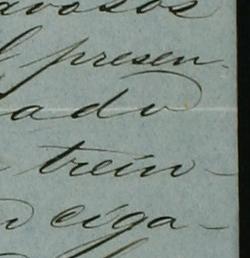 avosos
presen-
ado
trein-
ciga-